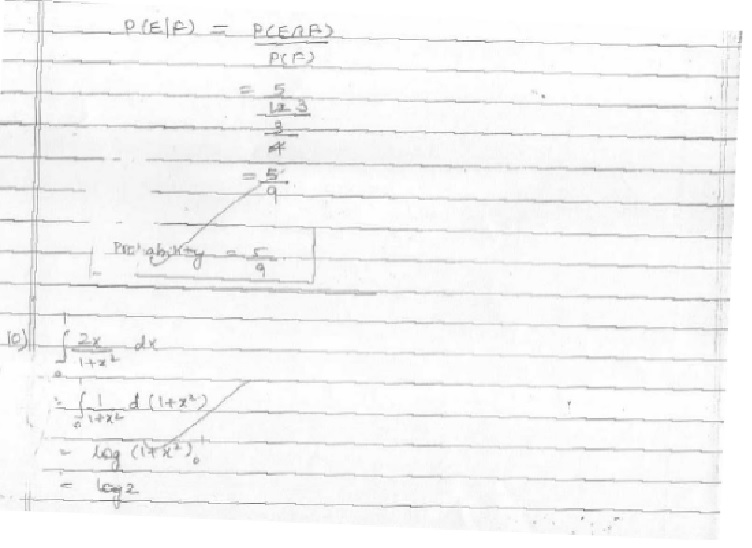 P(E|F) = P(E∩F)
P(F)
= 5
12 3
3
4
= 5
9
Probability = 5
9
10) ∫₀¹ 2x/(1+x²) dx
= ∫₀¹ 1/(1+x²) d(1+x²)
= log (1+x²)₀¹
= log2